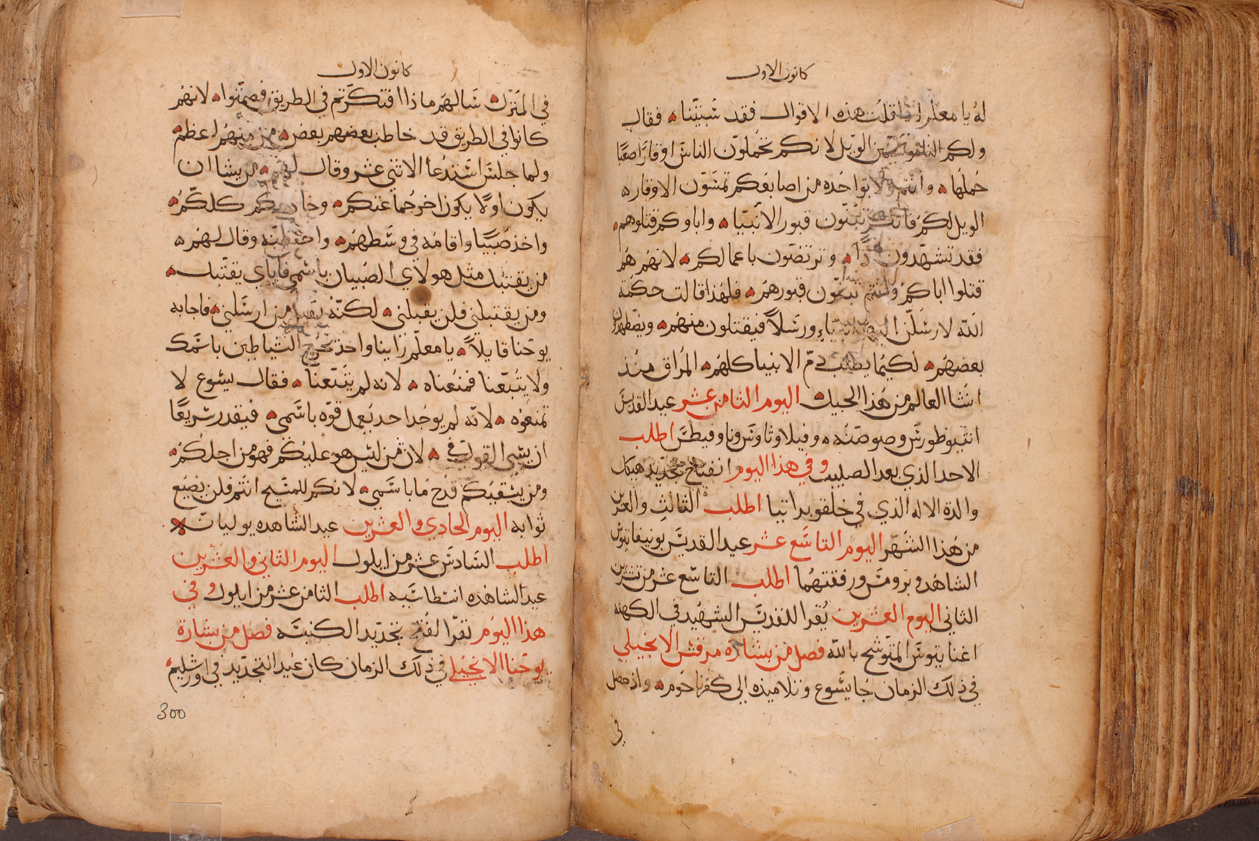 كانون الاول
له يا معلم اذا قلت هذه الاقوال فقد شتمتنا فقال
ولكم الويل لانكم تحملون الناس اوقارا صعبا
حملها وانتم ولا بواحده من اصابعكم تمسون الاوقار
الويل لكم فانكم تبنون قبور الانبيا واباوكم قتلوهم
فقد تشهدون اذًا وترتضون باعمال لانهم هم
قتلوا اباكم وانتم تبنون قبورهم فلهذا قالت حكمة
الله لارسلن اليهم انبياء ورسلاً فيقتلون منهم ويضطهدون
بعضهم لكيما يطلب دم الانبيا كلهم المراق منذ
انشا العالم من هذا الجيل اليوم الثامن عشر عيد القديس
اطلب
الاحد الذي بعد الصليب وفي هذا اليوم انفتاح تجديد هيكل
والدة الاله الذي في اطلب الثالث والعشرين
من هذا الشهر اليوم التاسع عشر عيد القديس بونيفاتيوس
الشاهد وبروموس ورفقتهما اطلب التاسع عشر من تشرين
الثاني اليوم العشرين يقرا للقديس الشهيد في الكهنه
اغناتيوس المتوشح بالله فصل من بشارة مرقس الانجيلي
في ذلك الزمان جا يشوع وتلاميذه الى كفرناحوم واذ حصل
في
كانون الاول
في المنزل سالهم ماذا افتكرتم في الطريق فصمتوا لانهم
كانوا في الطريق قد خاطب بعضهم بعض من منهم اعظم
ولما جلس استدعا الاثني عشر وقال لهم من يشا ان
يكون اولا يكون اخر جماعتكم وخادمكم كلكم
واخذ صبيا واقامه في وسطهم واحتضنه وقال لهم
من يقتبل مثل هولاي الصبيان باسمي فاياي يقتبل
ومن يقتبلني فلن يقبلني لكنه يقبل من ارسلني فاجابه
يوحنا قايلاً يا معلم راينا واحد تخرج الشياطين باسمك
ولا يتبعنا فمنعناه لانه لم يتبعنا فقال يشوع لا
تمنعوه لانه لم يوجد احد يعمل قوه باسمي فيقدر سريعًا
ان يسي القول في لان من ليس هو عليكم فهو من اجلكم
ومن يسقيكم قدح ما باسمي لانكم للمسيح انتم فلن يضيع
ثوابه اليوم الحادي والعشرين عيد الشاهده يوليانه
اطلب السادس عشر من ايلول اليوم الثاني والعشرين
عيد الشاهده انسطاسيه اطلب الثامن عشر من ايلول وفي
هذا اليوم تقرا لفتح تجديد الكنيسه فصل من بشارة
يوحنا الانجيلي في ذلك الزمان كان عيد التجديد في اورشليم
300